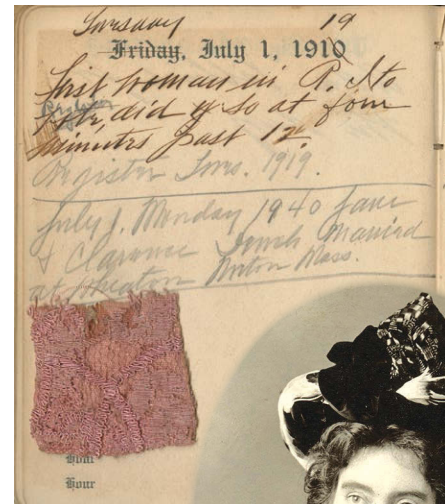 Tuesday 19
Friday, July 1, 1910
first woman in R. I. to
did so at four
minutes past 12.
Register Tues. 1919.
July 1. Monday 1940 Jane
& Clarence Married
at Wheaton Norton Mass.
Hour
Hour